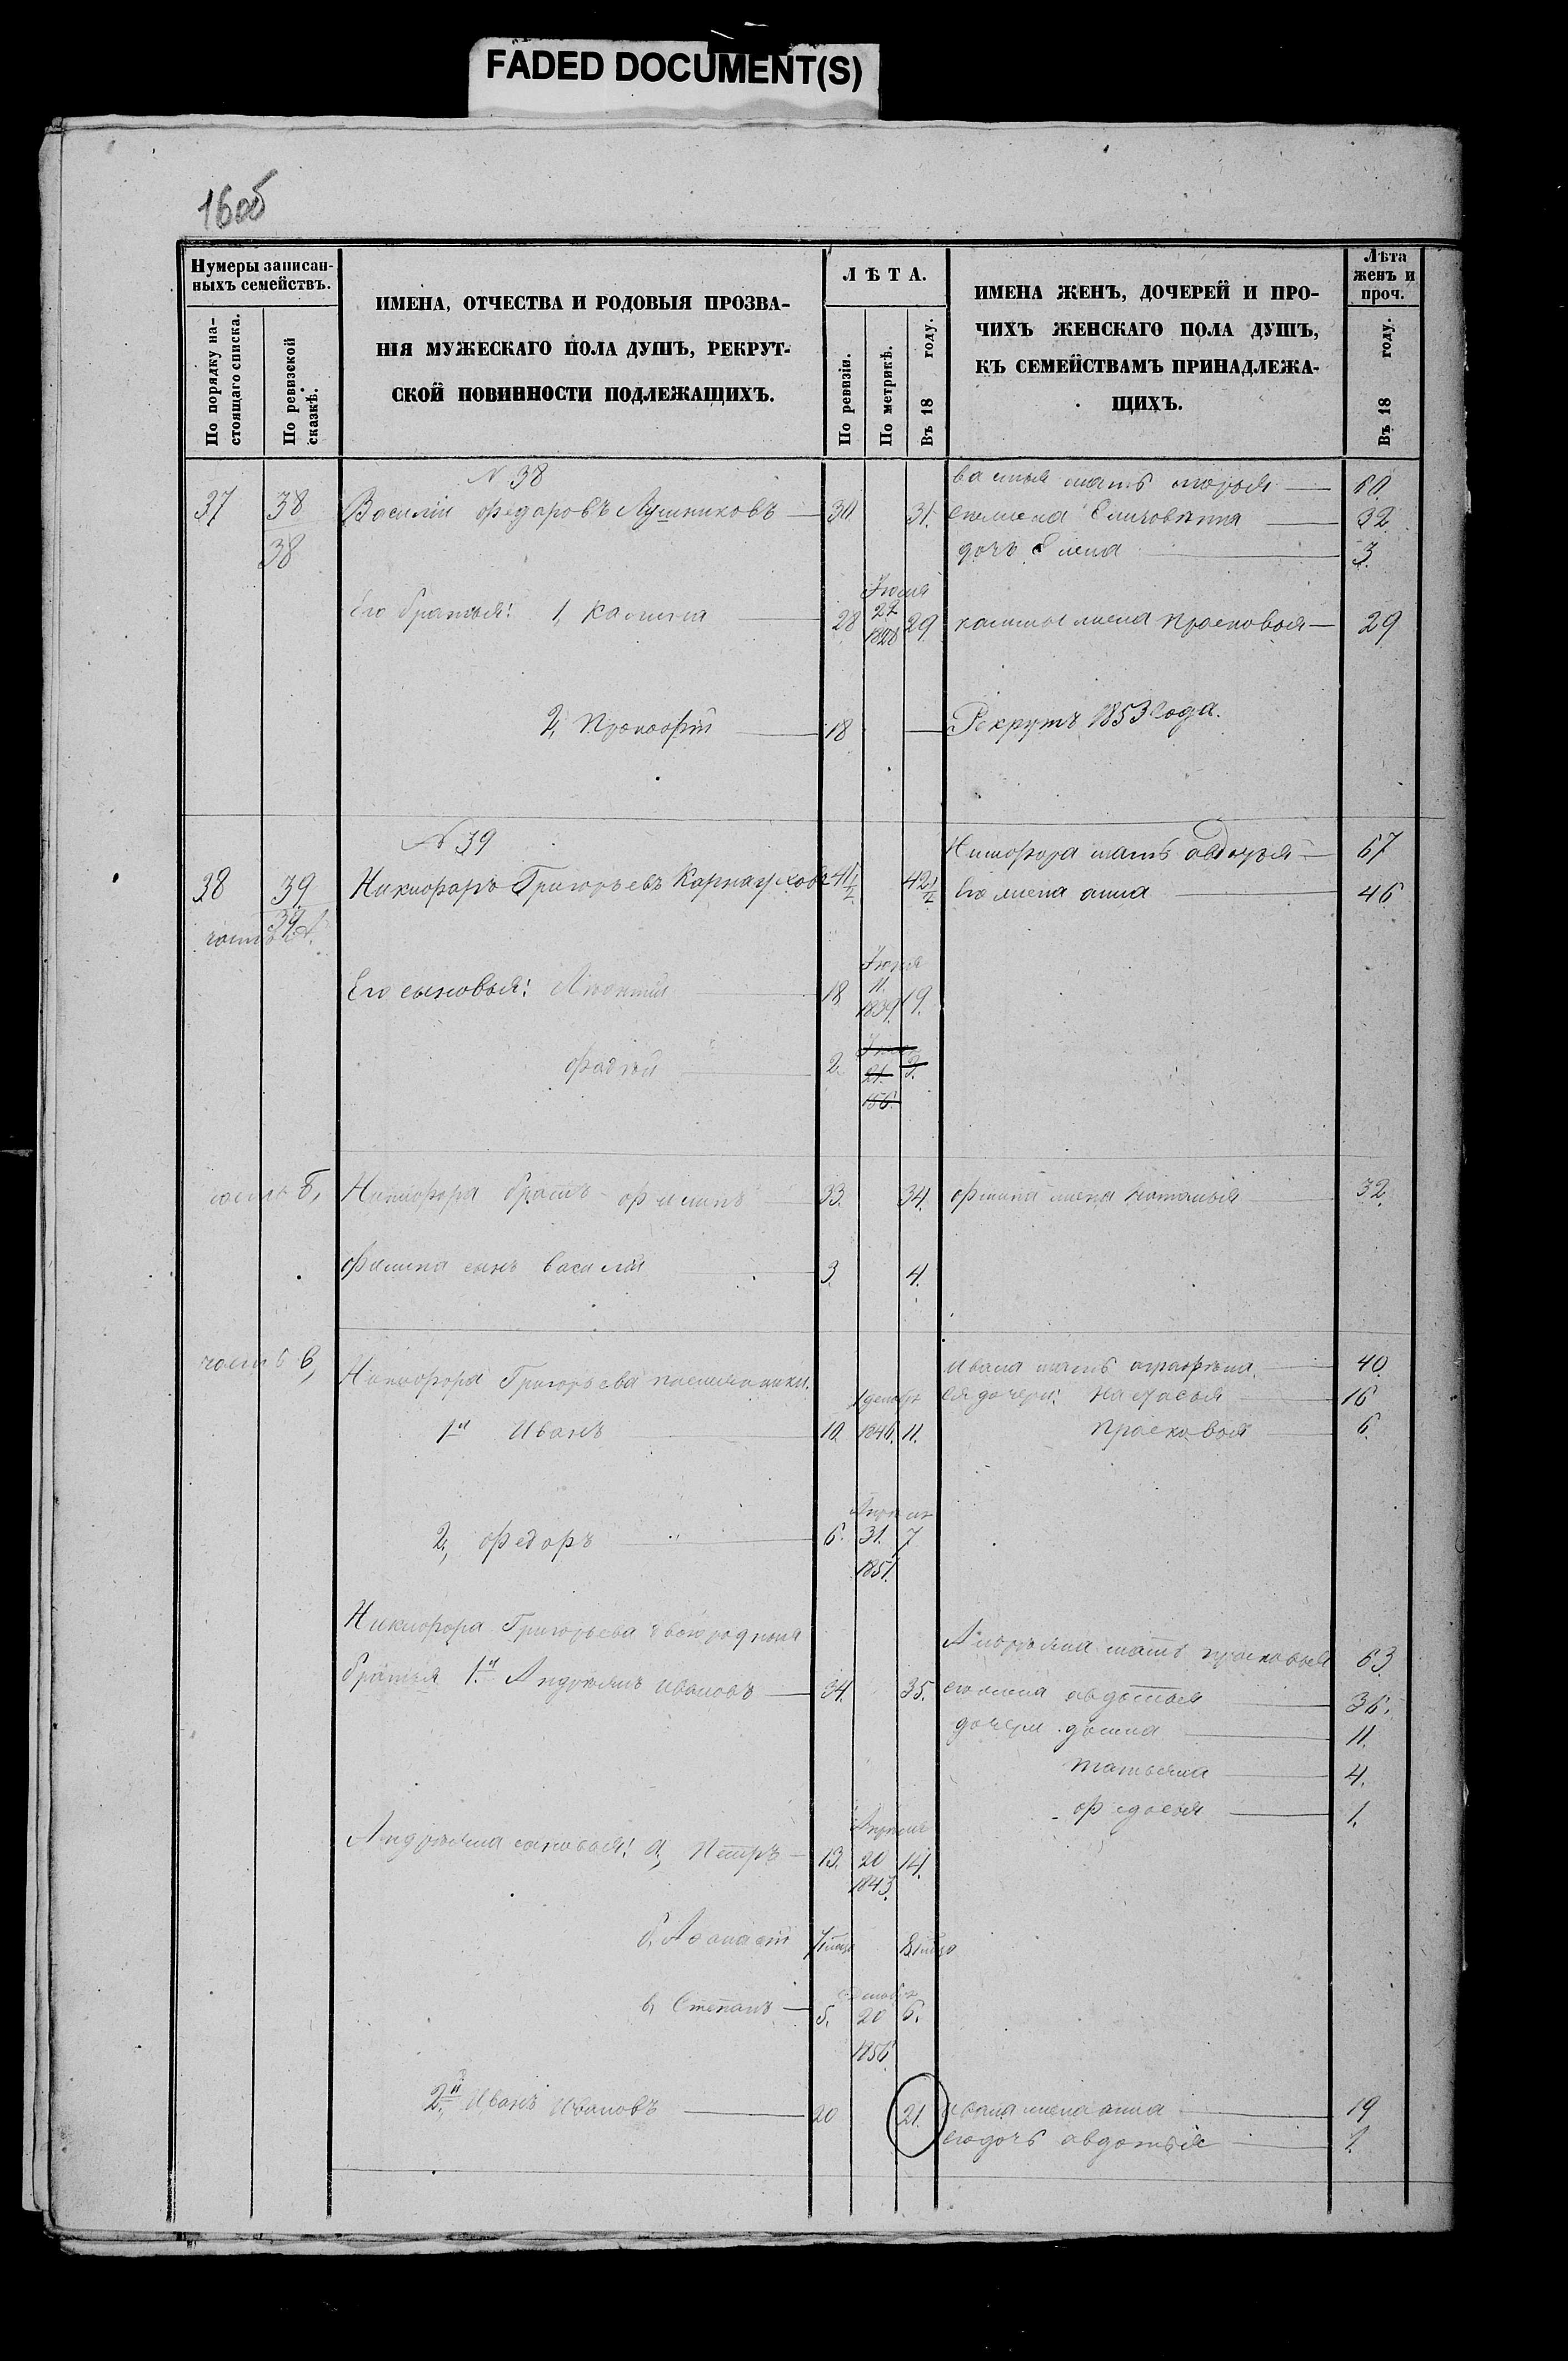 FADED DOCUMENT(S)
16об
Нумеры записан-
ныхъ семействъ.
По порядку на-
стоящаго списка.
По ревизской
сказкѣ.
ИМЕНА, ОТЧЕСТВА И РОДОВЫЯ ПРОЗВА-
НІЯ МУЖЕСКАГО ПОЛА ДУШЪ, РЕКРУТ-
СКОЙ ПОВИННОСТИ ПОДЛЕЖАЩИХЪ.
ЛѢТА.
По ревизіи.
По метрикѣ.
Въ 18 году.
ИМЕНА ЖЕНЪ, ДОЧЕРЕЙ И ПРО-
ЧИХЪ ЖЕНСКАГО ПОЛА ДУШЪ,
КЪ СЕМЕЙСТВАМЪ ПРИНАДЛЕЖА-
ЩИХЪ.
Лѣта
женъ и
проч.
Въ 18 году.
N 38
мать марья 60.
37 38 Василій федаровъ Лушниковъ 30. 31. 32
38 дочь Елена 3.
Его братья: 1, Калина 28 22 1828 29 жена прасковья 29
2, Прокофій 18 Рекрутъ 1853 Года.
N 39
Никифора мать авдотья 67
38 39 Никифоръ Григорьевъ Карнауховъ 41½ 42½ Его жена анна 46
39
часть а.
Его сыновья: Леонтій 18 11. 1839. 19.
фадѣй 2. 21. 3.
156.
часть б, Никифора братъ филипъ 33. 34. филипа жена наталья 32.
филипа сынъ василій 3. 4.
часть в,
Никифора Григорьева племяники.
ивана мать аграфѣна 40.
Ея дочери: Настасья 16
1й Иванъ 10. 1 декабр 1846. 11. Прасковья 6.
2, федоръ 6. Апреля 31. 1851. 7
Никифора Григорьева двоюродныя
братья 1й Андреянъ ивановъ 34. 35.
Андреяна мать прасковья 63.
его жена авдотья 36.
дочери 11.
татьяна 4.
федосья 1.
Андреяна сыновья: а, Петръ 13. Апреля 20 1843. 14.
б, Афанасій
в, Степанъ 5. 20 1856 6.
2й Иванъ ивановъ 20 21. ивана жена анна 19
его дочь авдотья 1.